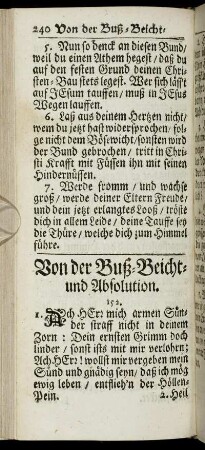 240 Von der Buß-Beicht-
5. Nun so denck an diesen Bund/
weil du einen Athem hegest / daß du
auf den festen Grund deinen Chri-
sten-Bau stets legest. Wer sich läfft
auf JEsum tauffen / muß in JEsus
Wegen lauffen.
6. Laß aus deinem Hertzen nicht/
wem du jetzt hast widersprochen / fol-
ge nicht dem Bösewicht / sonsten wird
der Bund gebrochen / tritt in Chri-
sti Krafft mit Füssen ihn mit seinen
Hindernüssen.
7. Werde fromm / und wachse
groß / werde deiner Eltern Freude/
und dein jetzt erlangtes Looß / tröste
dich in allem Leide / deine Tauffe sey
die Thüre / welche dich zum Himmel
führe.
Von der Buß-Beicht-
und Absolution.
152.
1. Ach HErr mich armen Sün-
der straff nicht in deinem
Zorn : Dein ernsten Grimm doch
linder / sonst ists mit mir verlohrn;
Ach HErr! wollst mir vergeben mein
Sünd und gnädig seyn / daß ich mög
ewig leben / entflieh'n der Höllen-
Pein. 2. Heil